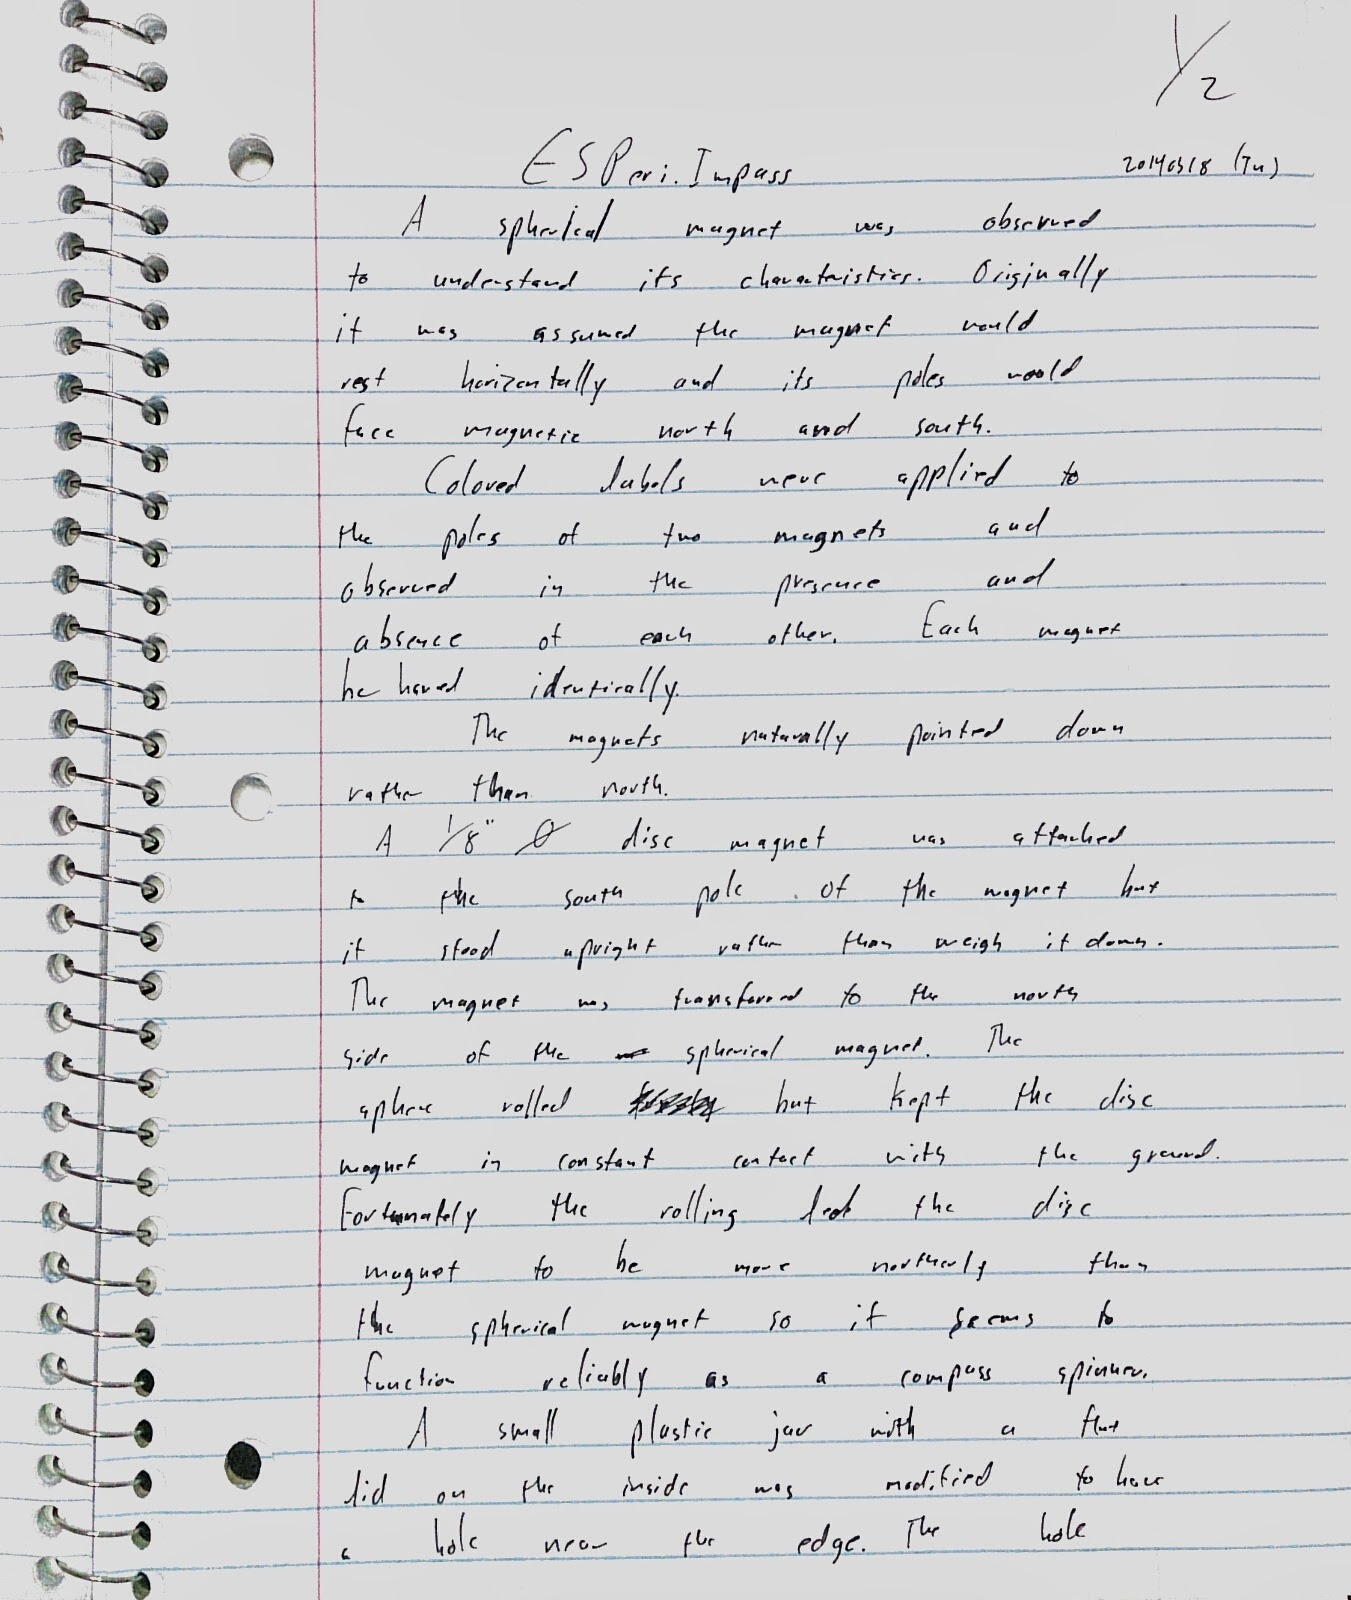 1/2
ESPeri.Impass 20140318 (Tu)
A spherical magnet was observed
to understand its characteristics. Originally
it was assumed the magnet would
rest horizontally and its poles would
face magnetic north and south.
Colored labels were applied to
the poles of two magnets and
observed in the presence and
absence of each other. Each magnet
behaved identically.
The magnets naturally pointed down
rather than north.
A 1/8" Ø disc magnet was attached
to the south pole of the magnet but
it stood upright rather than weigh it down.
The magnet was transfered to the north
side of the spherical magnet. The
sphere rolled but kept the disc
magnet in constant contact with the ground.
Fortunately the rolling led the disc
magnet to be more northerly than
the spherical magnet so it seems to
function reliably as a compass spinner.
A small plastic jar with a flat
lid on the inside was modified to have
a hole near the edge. The hole